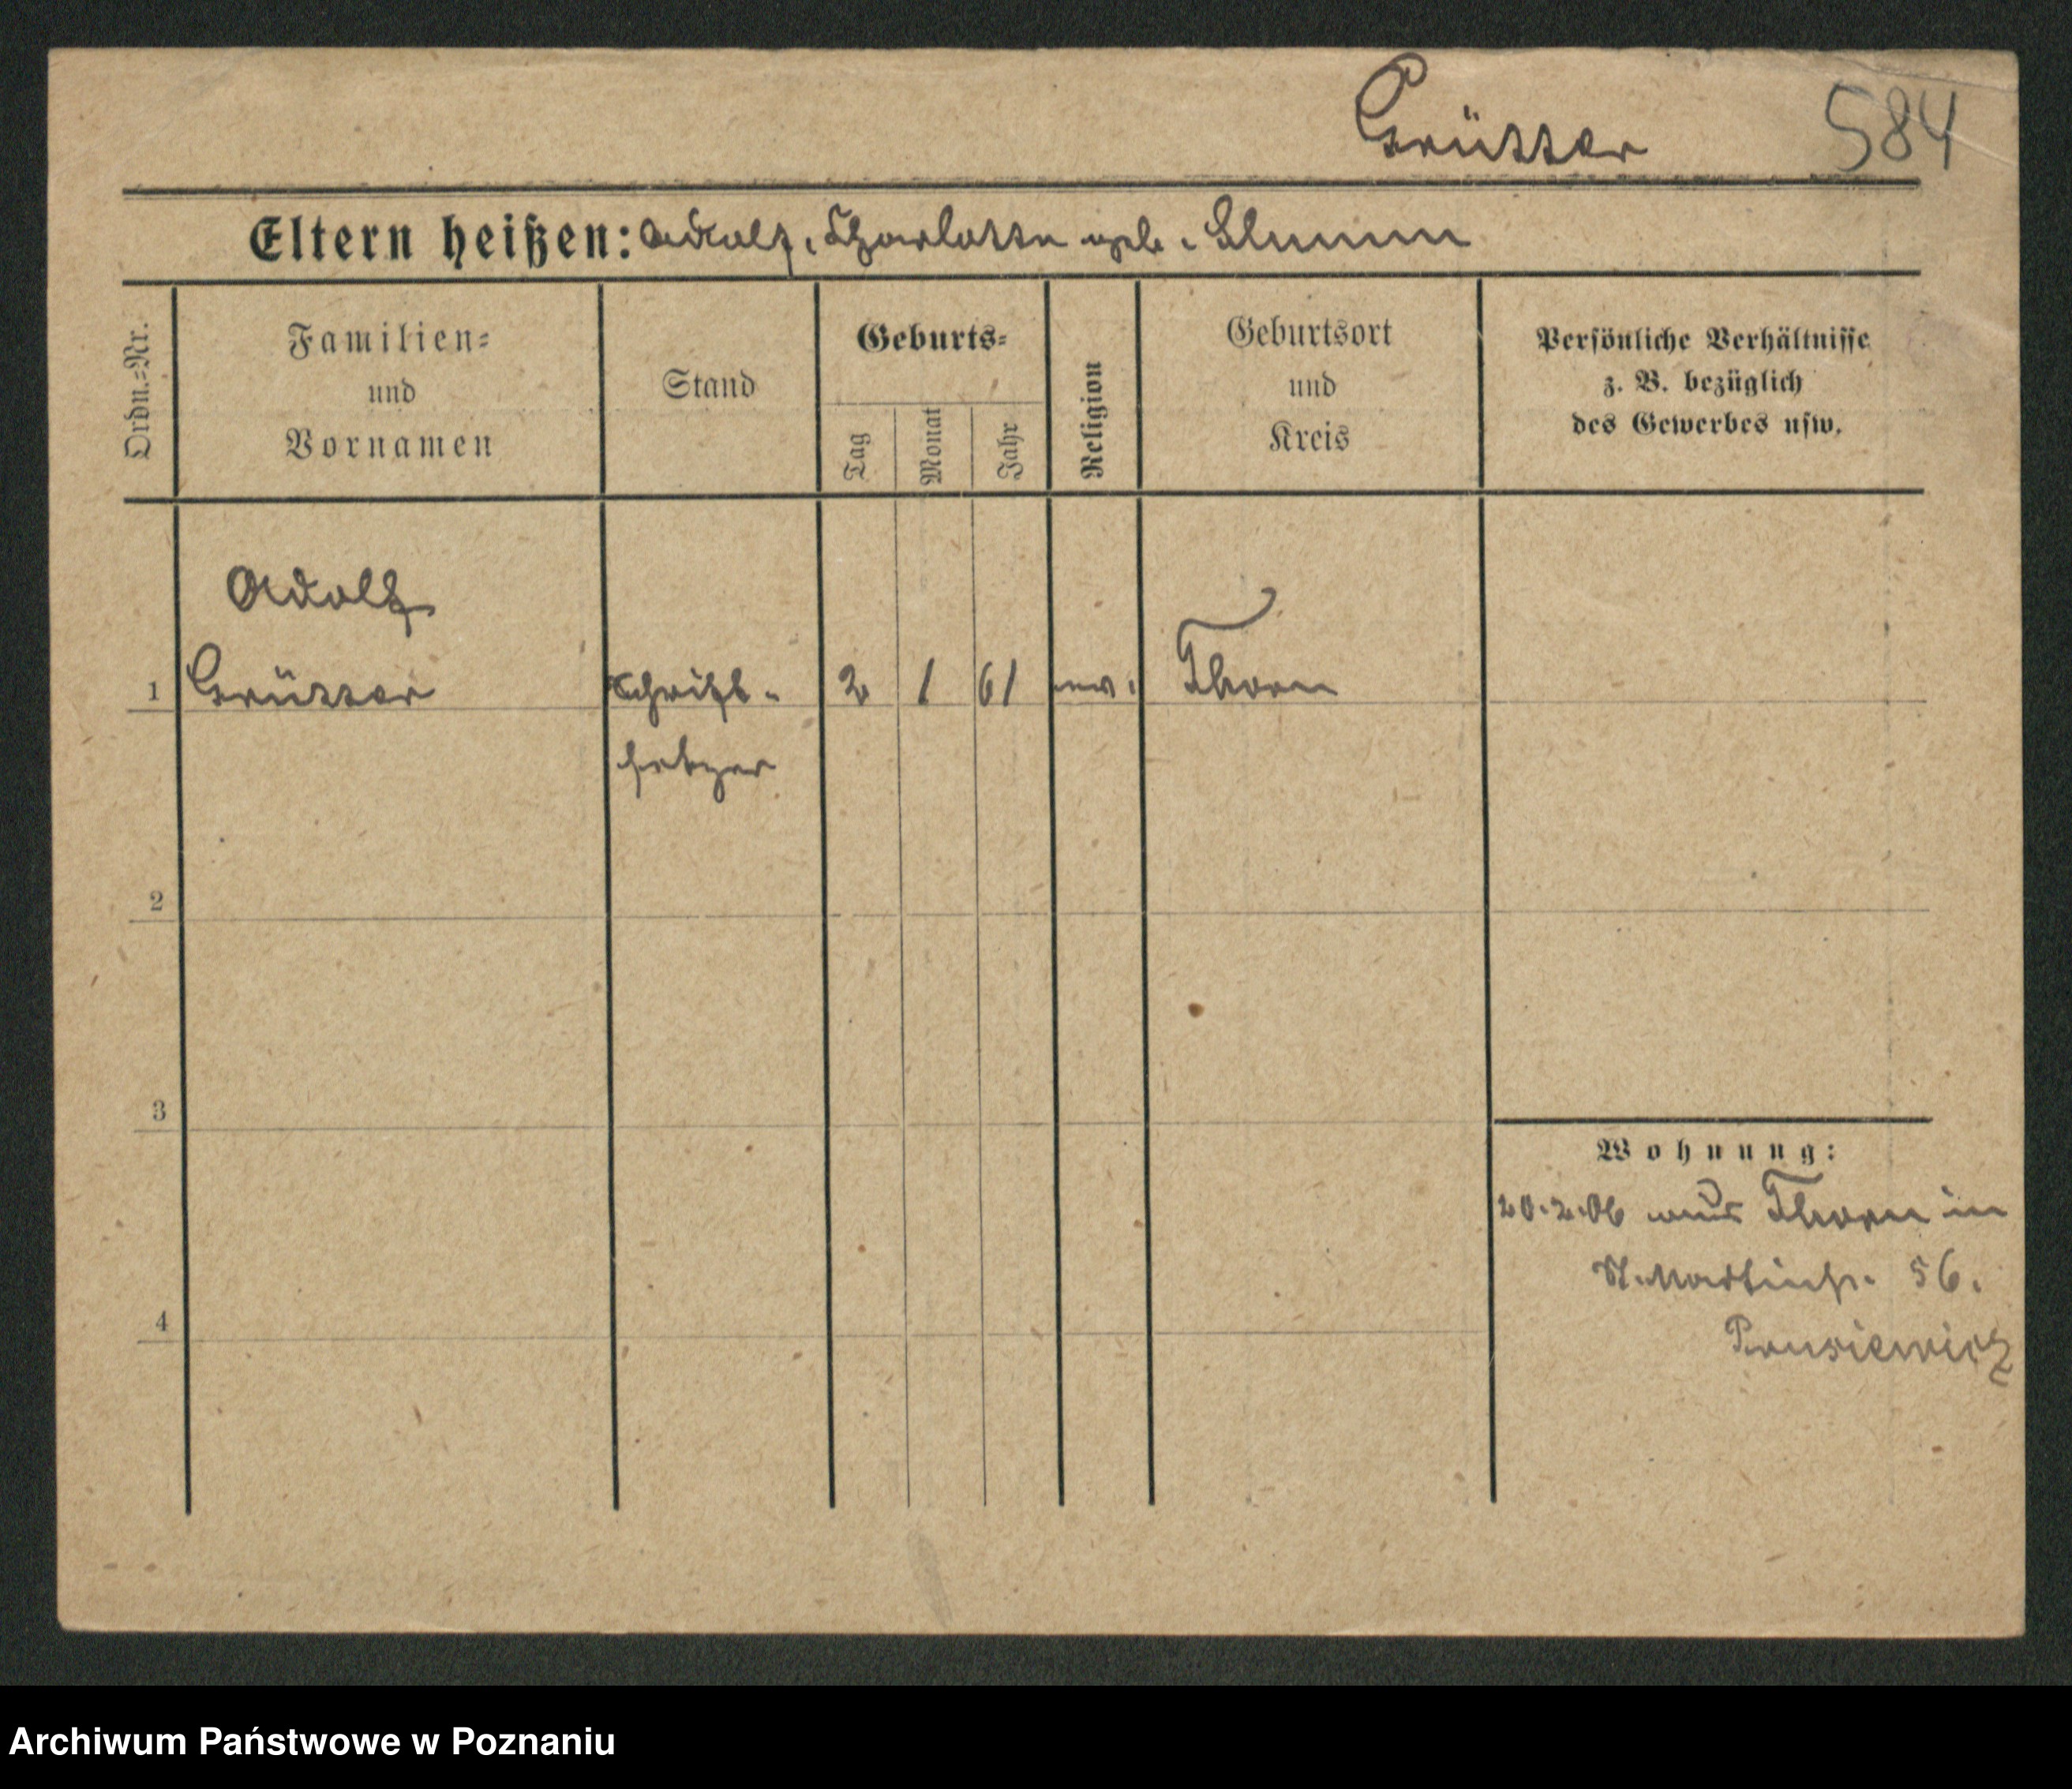 Grütter 584
Eltern heißen: Adolf, Charlotte geb. Blumm
Ordn.=Nr.
Familien=
und
Vornamen
Stand
Geburts=
Tag
Monat
Jahr
Religion
Geburtsort
und
Kreis
Persönliche Verhältnisse
z. B. bezüglich
des Gewerbes usw.
Adolf
1 Grütter Schrift- 2 1 61 ev. Thorn
setzer
2
3
4
Wohnung:
20.2.06 aus Thorn in
St. Martinstr. 56.
Prusiewicz
Archiwum Państwowe w Poznaniu